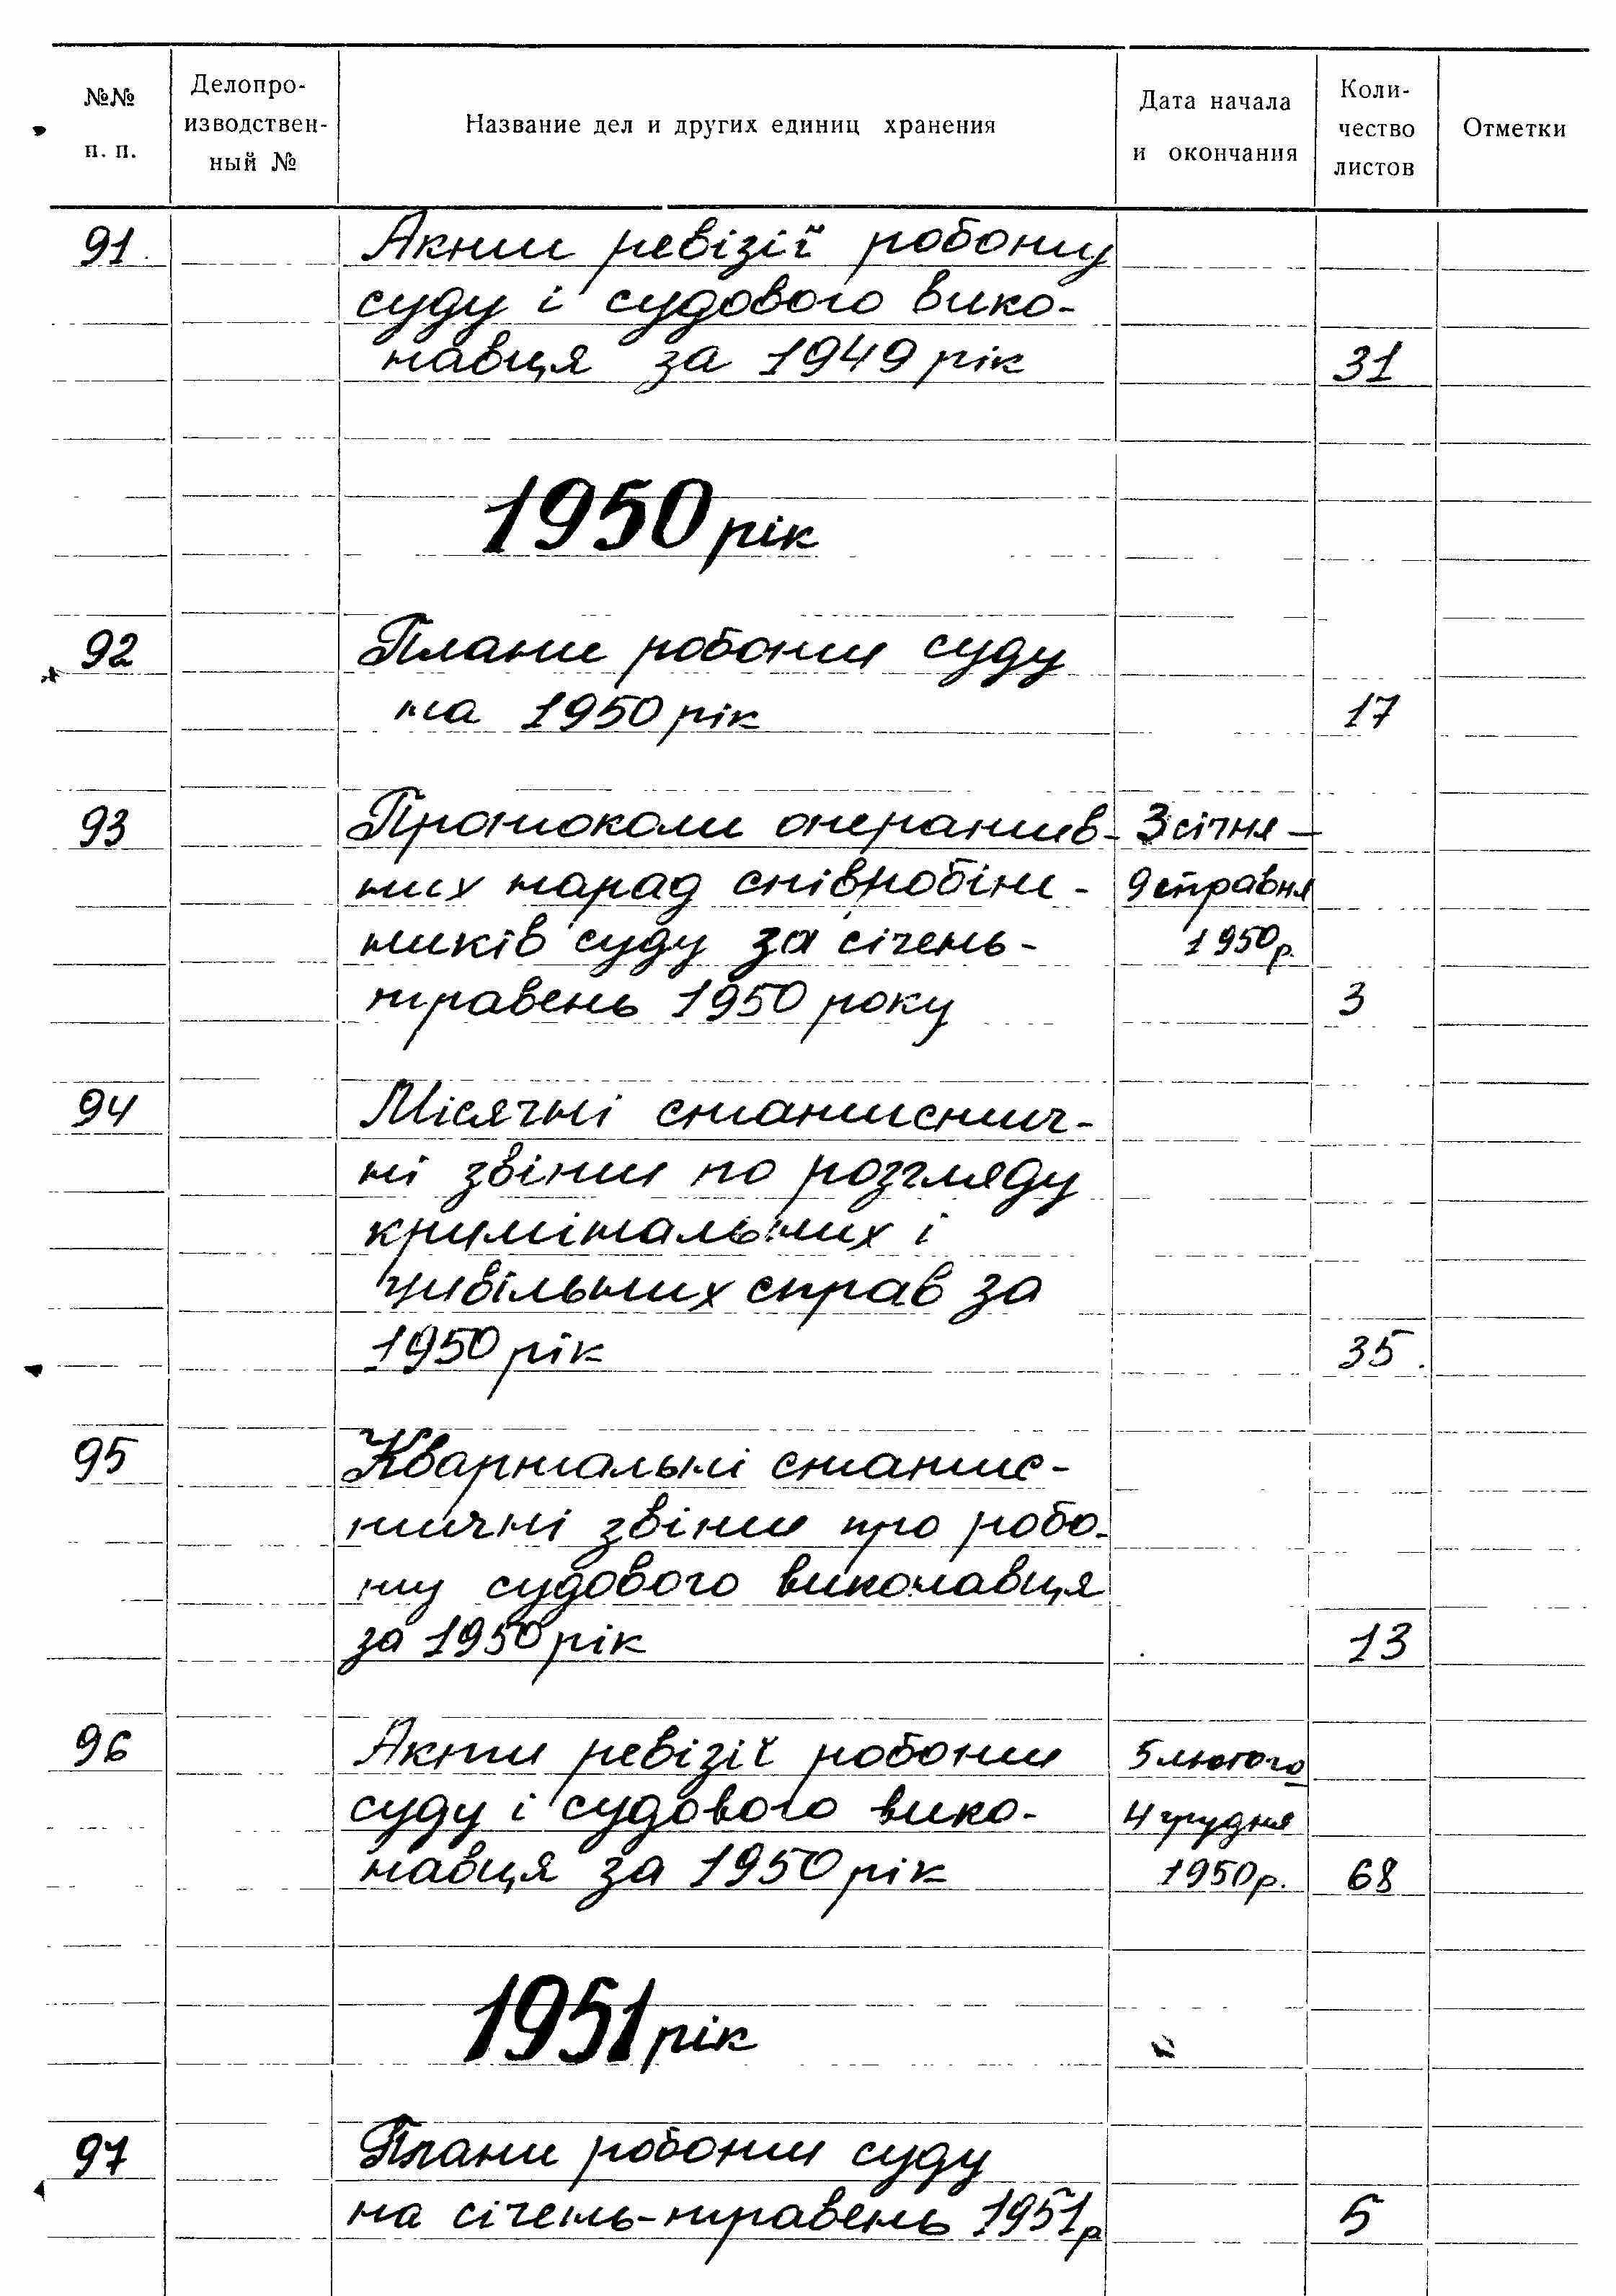 №№ п. п.
Делопро-
изводствен-
ный №
Название дел и других единиц хранения
Дата начала
и окончания
Коли-
чество
листов
Отметки
91. Акти ревізії роботу
суду і судового вико-
навця за 1949 рік 31
1950 рік
92 Плани роботи суду
на 1950 рік 17
93 Протоколи оператив- 3 січня –
них нарад співробіт- 9 травня
ників суду за січень- 1950 р.
травень 1950 року 3
94 Місячні статистич-
ні звіти по розгляду
кримінальних і
цивільних справ за
1950 рік 35.
95 Квартальні статис-
тичні звіти про робо-
ту судового виконавця
за 1950 рік 13
96 Акти ревізії роботи 5 лютого
суду і судового вико- 4 грудня
навця за 1950 рік 1950 р. 68
1951 рік
97 Плани роботи суду
на січень-травень 1951 р 5